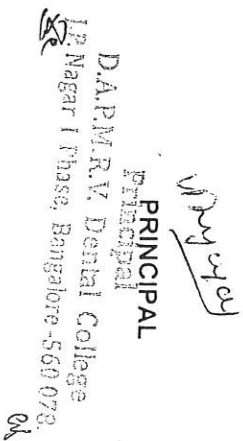 PRINCIPAL
Principal
D.A.P.M.R.V. Dental College
J.P. Nagar I Phase, Bangalore-560 078.